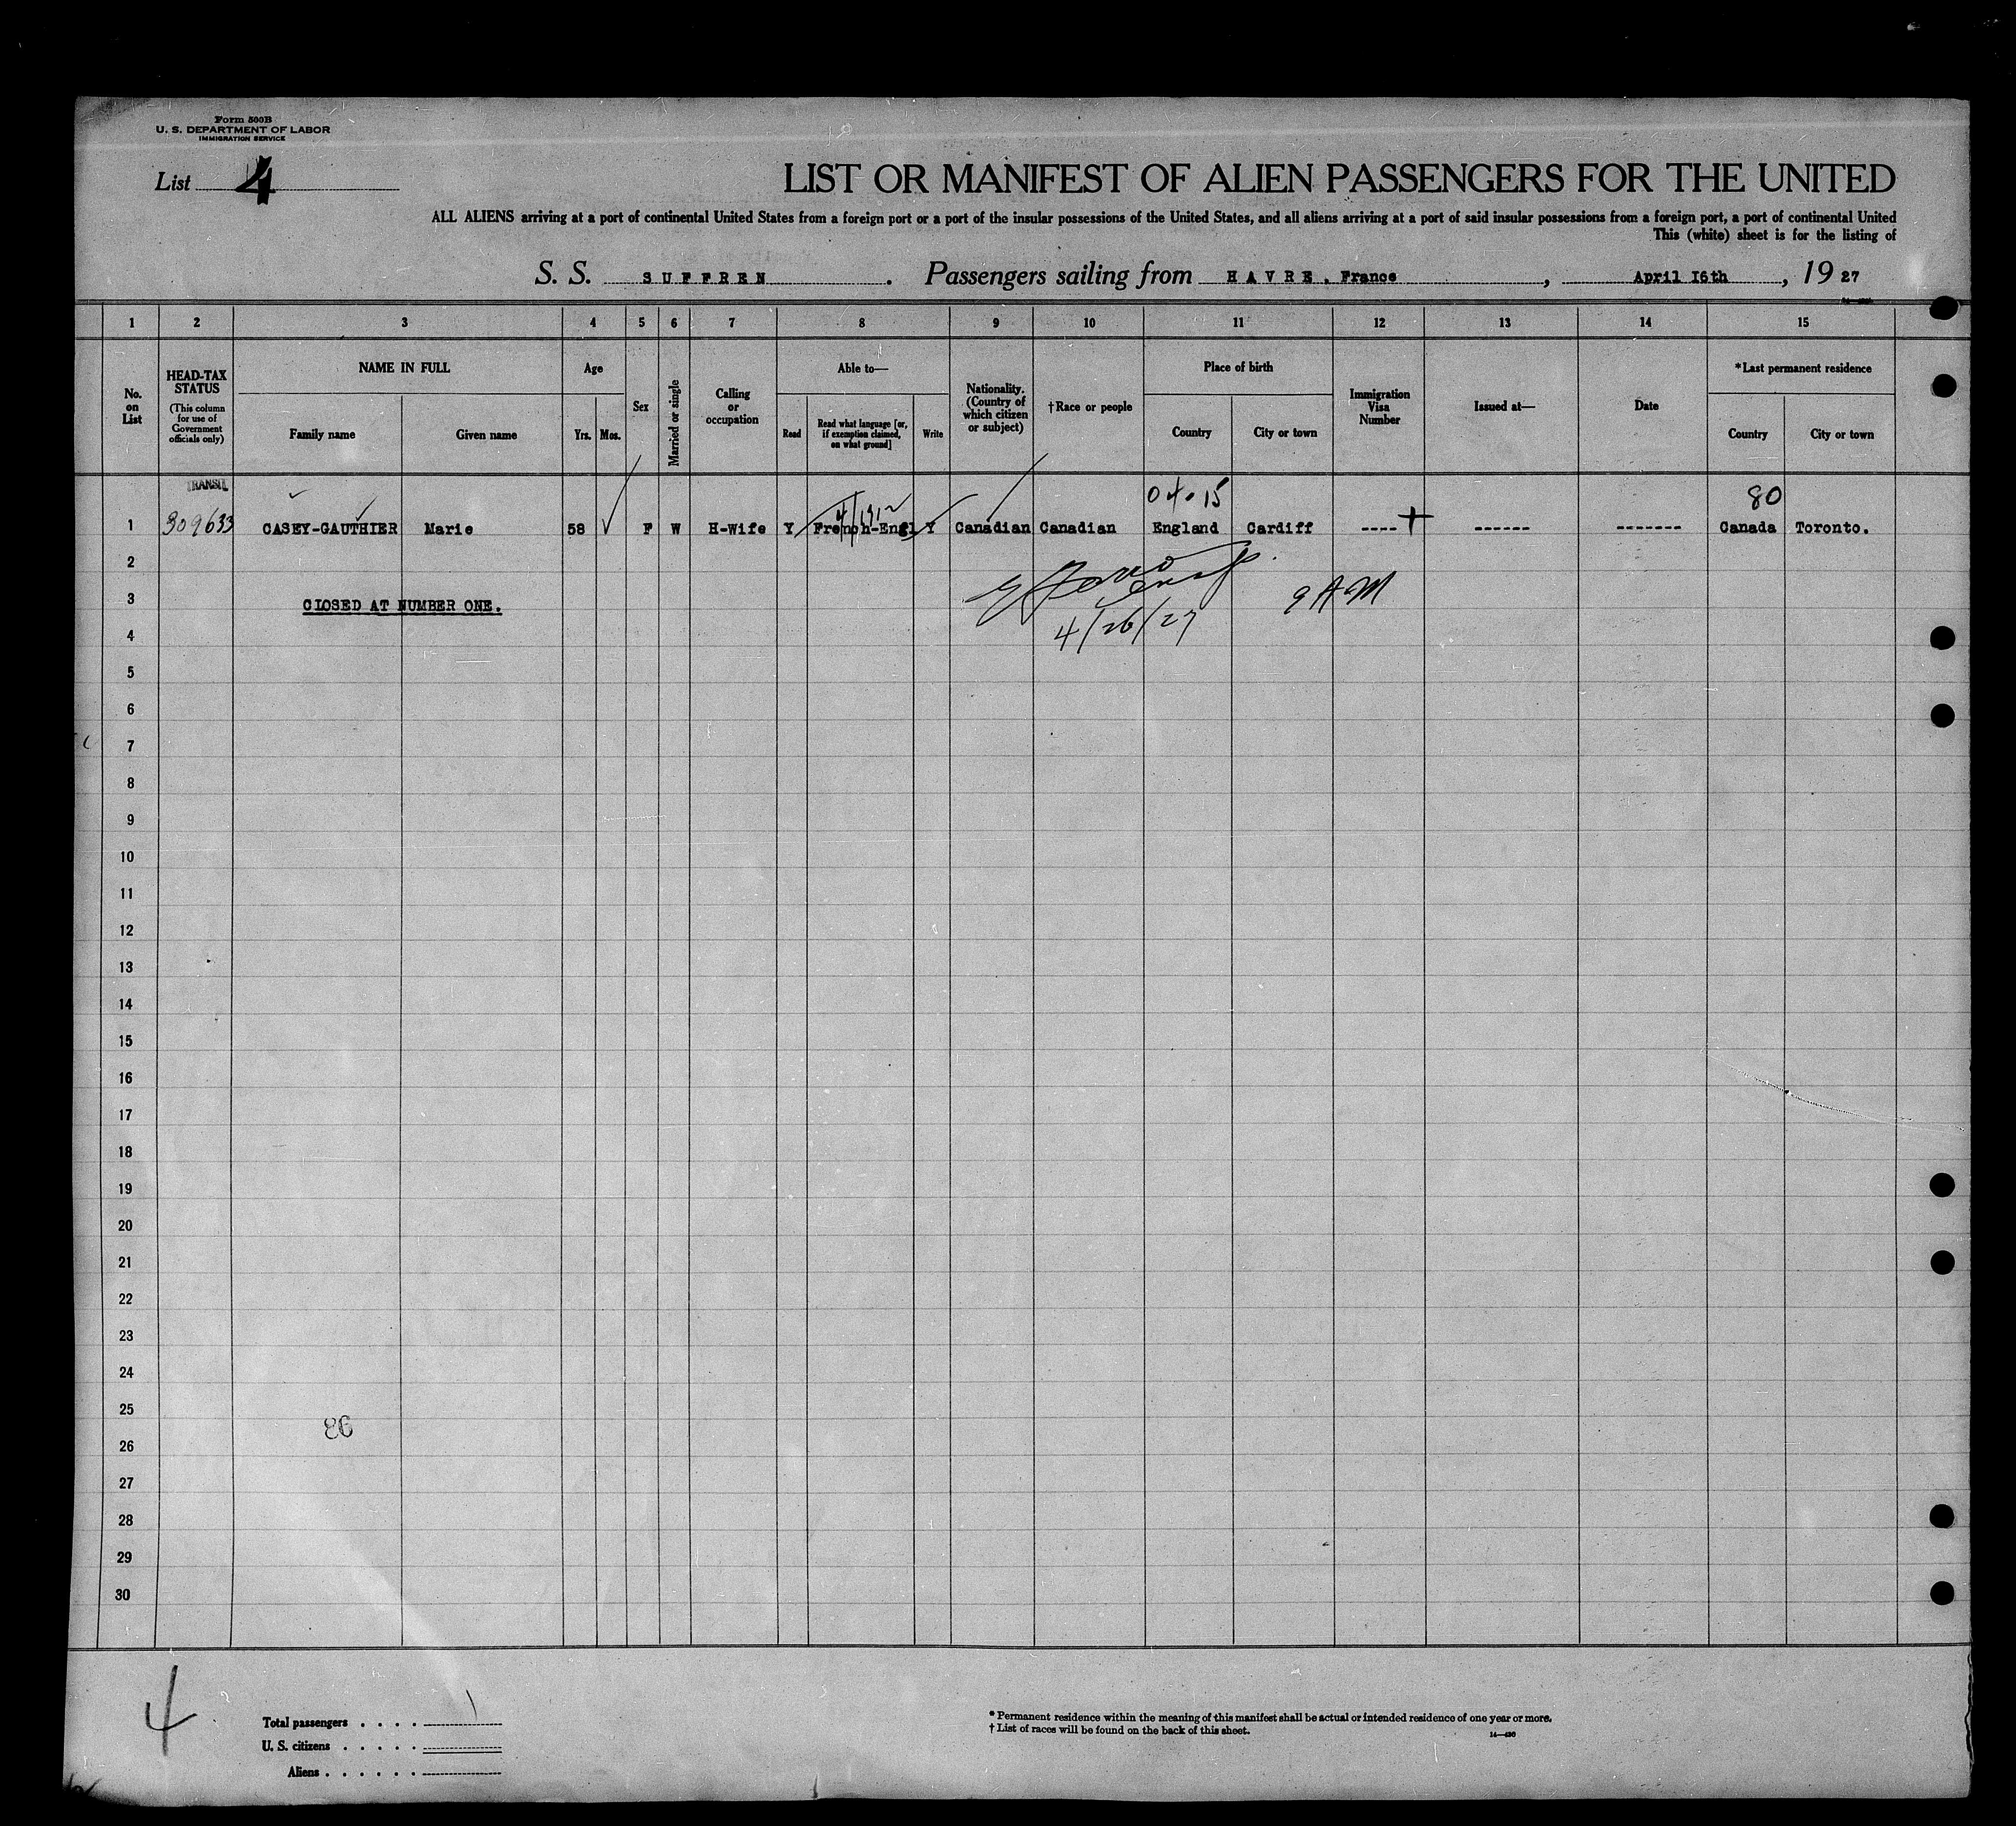 Form 500B
U. S. DEPARTMENT OF LABOR
IMMIGRATION SERVICE
List 4
LIST OR MANIFEST OF ALIEN PASSENGERS FOR THE UNITED
ALL ALIENS arriving at a port of continental United States from a foreign port or a port of the insular possessions of the United States, and all aliens arriving at a port of said insular possessions from a foreign port, a port of continental United
This (white) sheet is for the listing of
S. S. SUFFREN. Passengers sailing from HAVRE, France, April I6th, 1927
1 2 3 4 5 6 7 8 9 10 11 12 13 14 15
No. on List
HEAD-TAX STATUS
(This column for use of Government officials only)
NAME IN FULL
Family name
Given name
Age
Yrs. Mos.
Sex
Married or single
Calling or occupation
Able to—
Read
Read what language [or, if exemption claimed, on what ground]
Write
Nationality. (Country of which citizen or subject)
†Race or people
Place of birth
Country
City or town
Immigration Visa Number
Issued at—
Date
*Last permanent residence
Country
City or town
TRANSIT 04-15 80
1 309633 CASEY-GAUTHIER Marie 58 F W H-Wife Y French-Engl Y Canadian Canadian England Cardiff ---- ------ ------- Canada Toronto.
2
3 CLOSED AT NUMBER ONE. 9 AM
4 4/26/27
5
6
7
8
9
10
11
12
13
14
15
16
17
18
19
20
21
22
23
24
25
86
26
27
28
29
30
4
Total passengers . . . . 1
U. S. citizens . . . . .
Aliens . . . . . .
* Permanent residence within the meaning of this manifest shall be actual or intended residence of one year or more.
† List of races will be found on the back of this sheet.